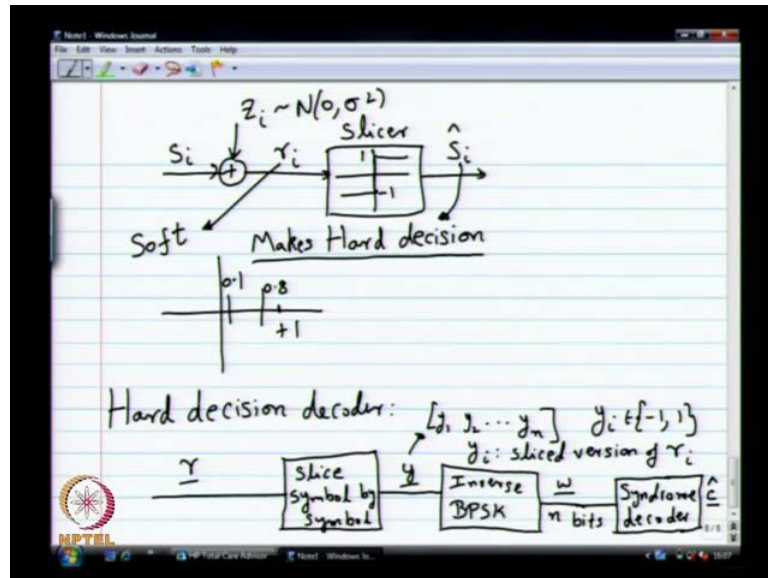 Note1 - Windows Journal
File Edit View Insert Actions Tools Help
Z_i ~ N(0, σ²)
Slicer
S_i + r_i 1 -1 Ŝ_i
Soft Makes Hard decision
0.1 0.8
+1
Hard decision decoder: [y_1 y_2 ... y_n] y_i ∈ {-1, 1}
y_i : sliced version of r_i
r Slice symbol by symbol y Inverse BPSK w n bits Syndrome decoder ĉ
NPTEL
8/8
HP Total Care Advisor Note1 - Windows Jo...
1607